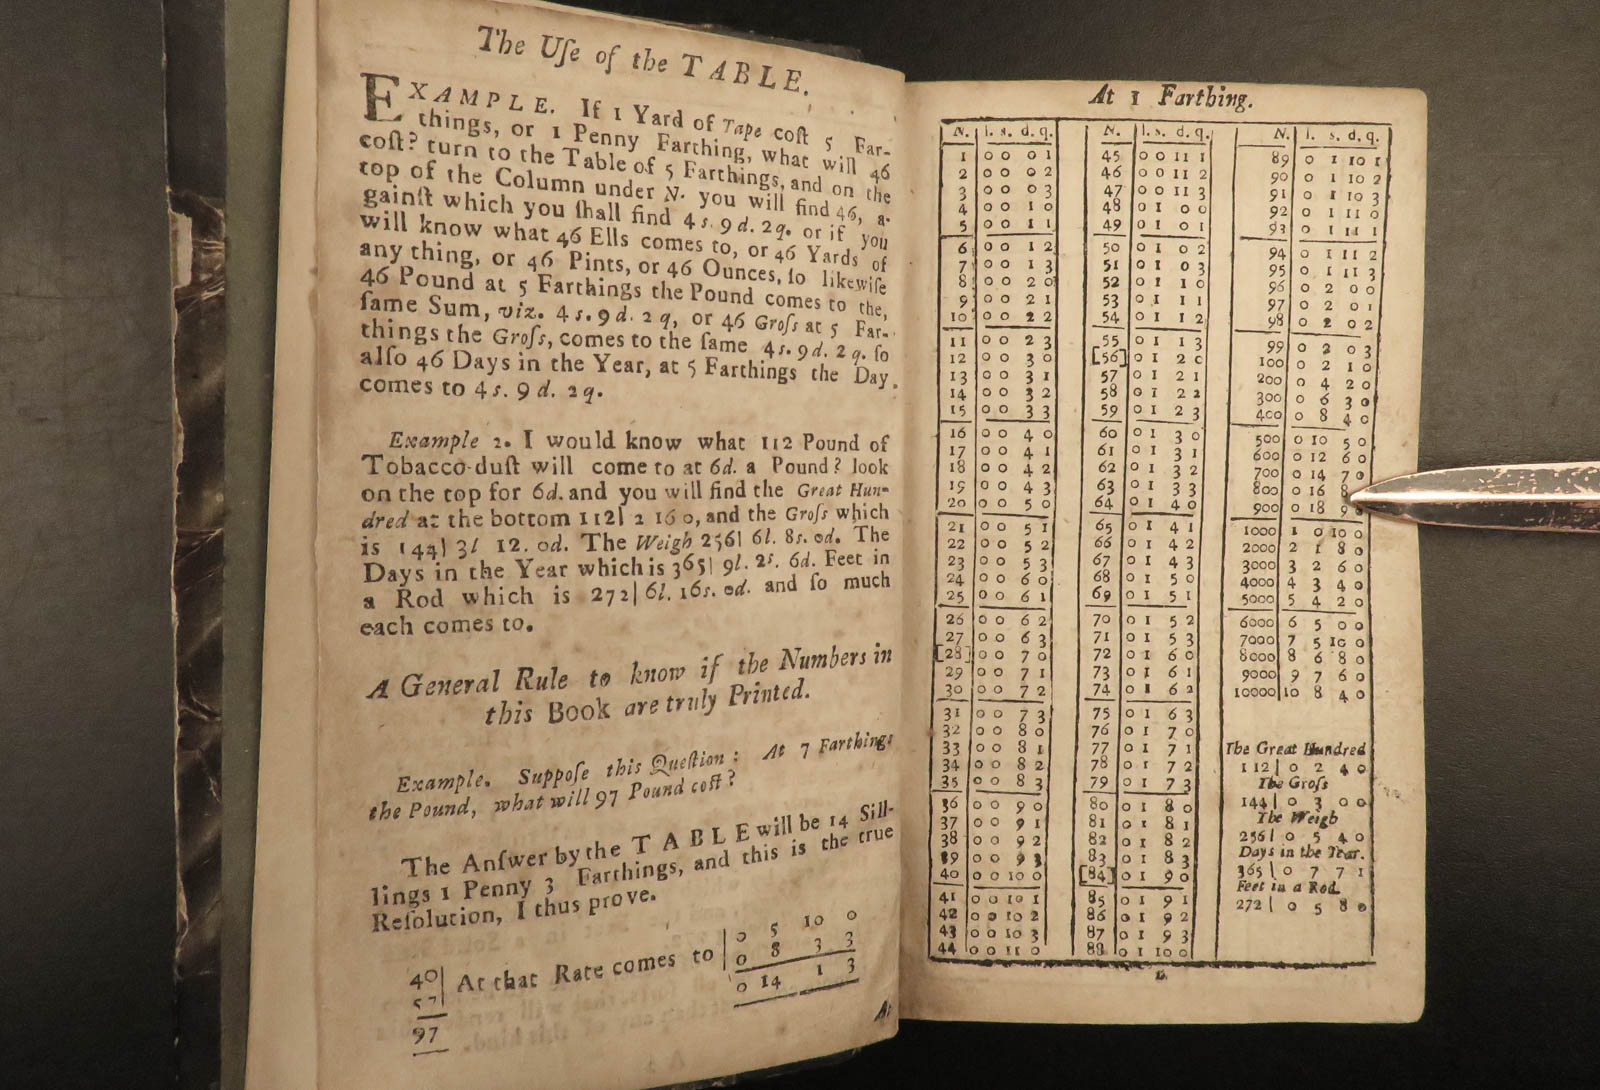 The Uſe of the TABLE.
EXAMPLE. If 1 Yard of Tape coſt 5 Far-
things, or 1 Penny Farthing, what will 46
coſt? turn to the Table of 5 Farthings, and on the
top of the Column under N. you will find 46, a-
gainſt which you ſhall find 4 s. 9 d. 2 q. or if you
will know what 46 Ells comes to, or 46 Yards of
any thing, or 46 Pints, or 46 Ounces, ſo likewiſe
46 Pound at 5 Farthings the Pound comes to the,
ſame Sum, viz. 4 s. 9 d. 2 q, or 46 Groſs at 5 Far-
things the Groſs, comes to the ſame 4 s. 9 d. 2 q. ſo
alſo 46 Days in the Year, at 5 Farthings the Day
comes to 4 s. 9 d. 2 q.
Example 2. I would know what 112 Pound of
Tobacco-duſt will come to at 6d. a Pound? look
on the top for 6d. and you will find the Great Hun-
dred at the bottom 112| 2 16 0, and the Groſs which
is 144| 3l 12. 0d. The Weigh 256| 6l. 8s. 0d. The
Days in the Year which is 365| 9l. 2s. 6d. Feet in
a Rod which is 272| 6l. 16s. 0d. and ſo much
each comes to.
A General Rule to know if the Numbers in
this Book are truly Printed.
Example. Suppoſe this Queſtion: At 7 Farthings
the Pound, what will 97 Pound coſt?
The Anſwer by the TABLE will be 14 Sill-
lings 1 Penny 3 Farthings, and this is the true
Reſolution, I thus prove.
40| At that Rate comes to | 0 5 10 0
57| 0 8 3 3
97 0 14 1 3
At
At 1 Farthing.
N. | l. s. d. q.
1 | 0 0 0 1
2 | 0 0 0 2
3 | 0 0 0 3
4 | 0 0 1 0
5 | 0 0 1 1
6 | 0 0 1 2
7 | 0 0 1 3
8 | 0 0 2 0
9 | 0 0 2 1
10 | 0 0 2 2
11 | 0 0 2 3
12 | 0 0 3 0
13 | 0 0 3 1
14 | 0 0 3 2
15 | 0 0 3 3
16 | 0 0 4 0
17 | 0 0 4 1
18 | 0 0 4 2
19 | 0 0 4 3
20 | 0 0 5 0
21 | 0 0 5 1
22 | 0 0 5 2
23 | 0 0 5 3
24 | 0 0 6 0
25 | 0 0 6 1
26 | 0 0 6 2
27 | 0 0 6 3
[28] | 0 0 7 0
29 | 0 0 7 1
30 | 0 0 7 2
31 | 0 0 7 3
32 | 0 0 8 0
33 | 0 0 8 1
34 | 0 0 8 2
35 | 0 0 8 3
36 | 0 0 9 0
37 | 0 0 9 1
38 | 0 0 9 2
39 | 0 0 9 3
40 | 0 0 10 0
41 | 0 0 10 1
42 | 0 0 10 2
43 | 0 0 10 3
44 | 0 0 11 0
N. | l. s. d. q.
45 | 0 0 11 1
46 | 0 0 11 2
47 | 0 0 11 3
48 | 0 1 0 0
49 | 0 1 0 1
50 | 0 1 0 2
51 | 0 1 0 3
52 | 0 1 1 0
53 | 0 1 1 1
54 | 0 1 1 2
55 | 0 1 1 3
[56] | 0 1 2 0
57 | 0 1 2 1
58 | 0 1 2 2
59 | 0 1 2 3
60 | 0 1 3 0
61 | 0 1 3 1
62 | 0 1 3 2
63 | 0 1 3 3
64 | 0 1 4 0
65 | 0 1 4 1
66 | 0 1 4 2
67 | 0 1 4 3
68 | 0 1 5 0
69 | 0 1 5 1
70 | 0 1 5 2
71 | 0 1 5 3
72 | 0 1 6 0
73 | 0 1 6 1
74 | 0 1 6 2
75 | 0 1 6 3
76 | 0 1 7 0
77 | 0 1 7 1
78 | 0 1 7 2
79 | 0 1 7 3
80 | 0 1 8 0
81 | 0 1 8 1
82 | 0 1 8 2
83 | 0 1 8 3
[84] | 0 1 9 0
85 | 0 1 9 1
86 | 0 1 9 2
87 | 0 1 9 3
88 | 0 1 10 0
N. | l. s. d. q.
89 | 0 1 10 1
90 | 0 1 10 2
91 | 0 1 10 3
92 | 0 1 11 0
93 | 0 1 11 1
94 | 0 1 11 2
95 | 0 1 11 3
96 | 0 2 0 0
97 | 0 2 0 1
98 | 0 2 0 2
99 | 0 2 0 3
100 | 0 2 1 0
200 | 0 4 2 0
300 | 0 6 3 0
400 | 0 8 4 0
500 | 0 10 5 0
600 | 0 12 6 0
700 | 0 14 7 0
800 | 0 16 8
900 | 0 18 9
1000 | 1 0 10 0
2000 | 2 1 8 0
3000 | 3 2 6 0
4000 | 4 3 4 0
5000 | 5 4 2 0
6000 | 6 5 0 0
7000 | 7 5 10 0
8000 | 8 6 8 0
9000 | 9 7 6 0
10000 | 10 8 4 0
The Great Hundred
112| 0 2 4 0
The Groſs
144| 0 3 0 0
The Weigh
256| 0 5 4 0
Days in the Year.
365| 0 7 7 1
Feet in a Rod.
272| 0 5 8 0